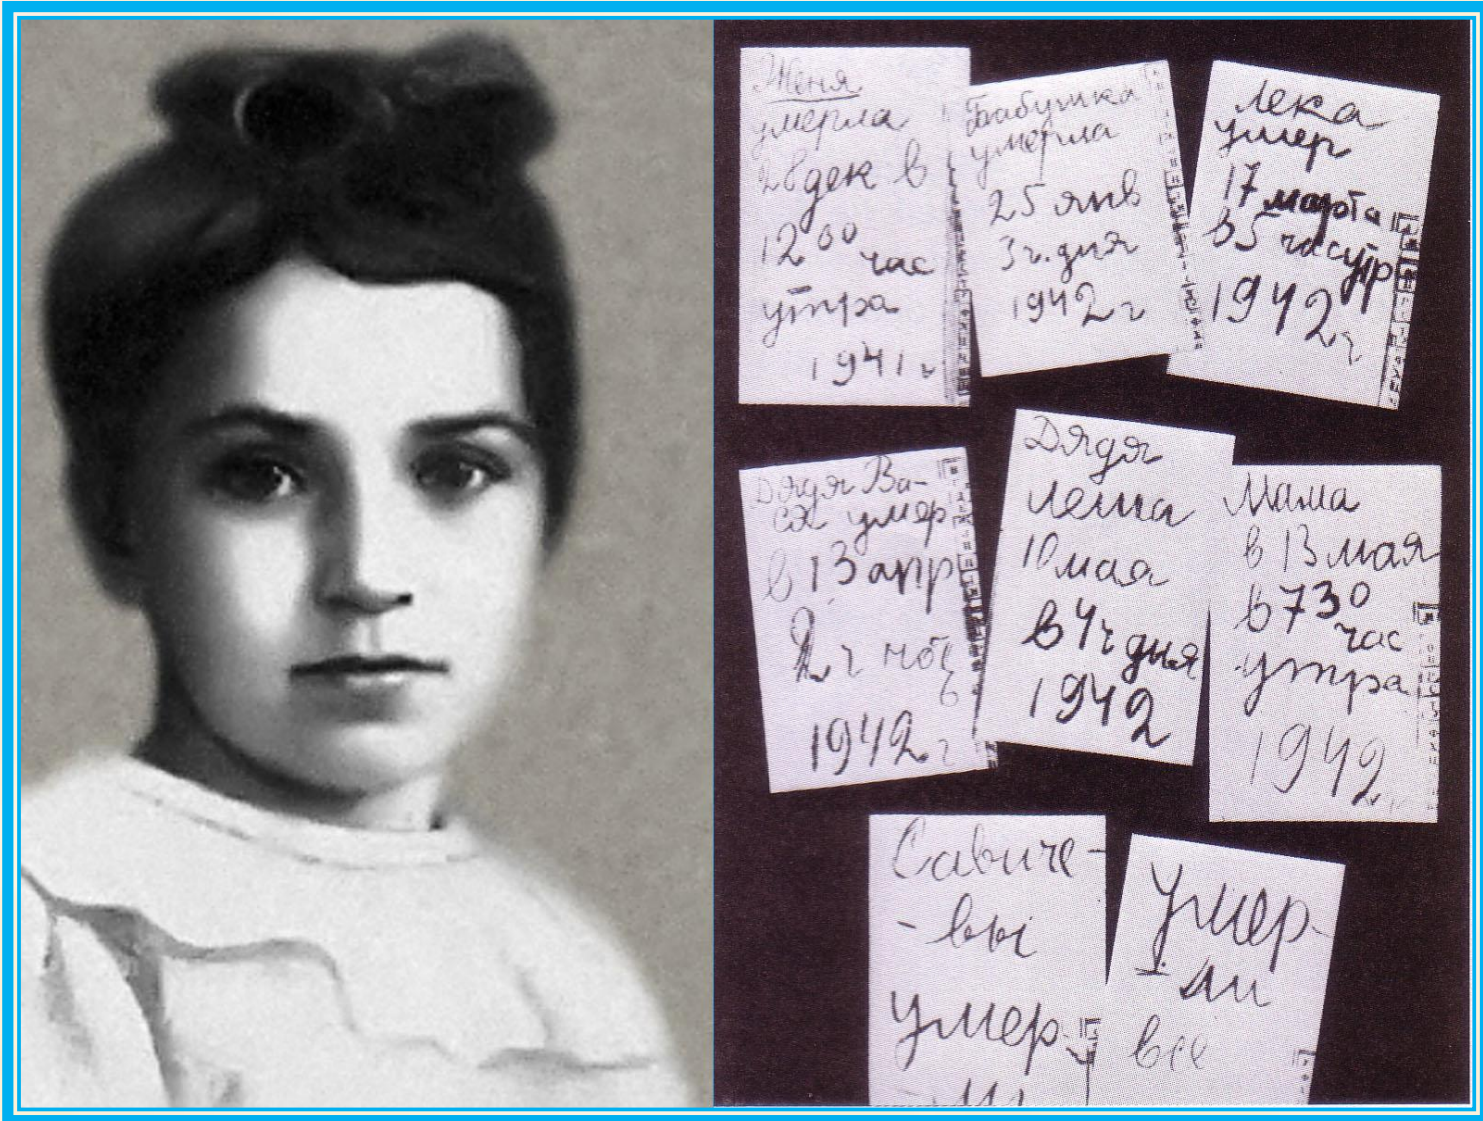 Женя
умерла
28 дек в
12 00
час
утра
1941 г
Бабушка
умерла
25 янв
3 ч. дня
1942 г
Лека
умер
17 марта
в 5 час утр
1942 г
Дядя Ва-
ся умер
в 13 апр
2 ч ноч
ь
1942 г
Дядя
Леша
10 мая
в 4 ч дня
1942
Мама
в 13 мая
в 7 30
час
утра
1942 г
Савиче-
-вы
умер-
-ли
Умер-
-ли
все